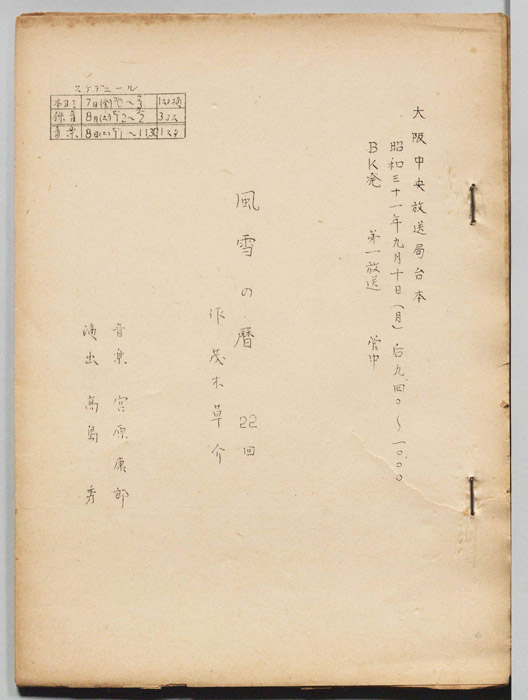 大阪中央放送局台本
昭和三十一年九月十日(月)后九.四〇〜一〇.〇〇
BK発 第一放送 管中
風雪の暦 22回
作 茂木草介
音楽 宮原康郎
演出 高島 秀
スケデュール
本ヨミ 7日(金)
録音 8月(土)
音楽 8日(土) 1〜11.30 1スタ